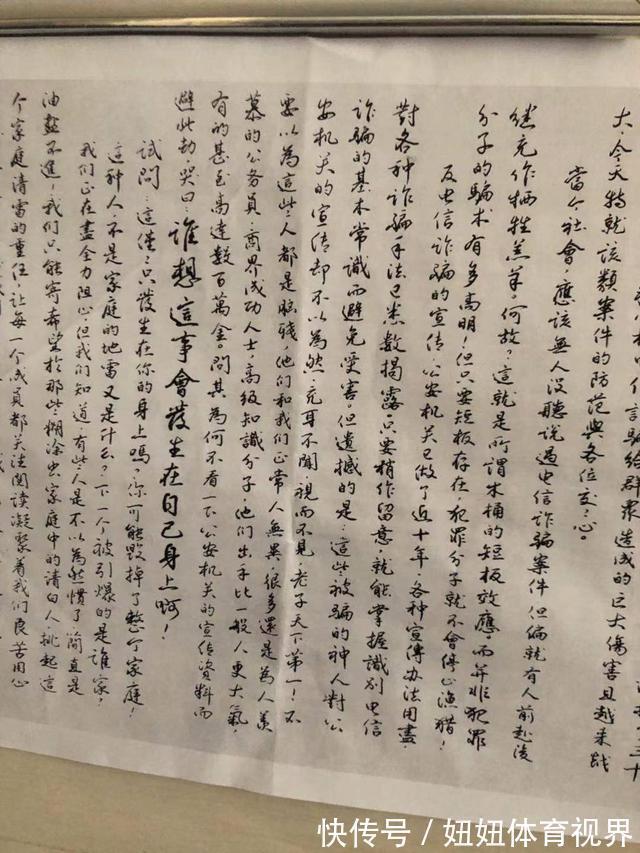 骗给群眾造成的巨大傷害且越来越
大,今天特就该類案件的防范與各位交心。
當今社會,應該無人沒聽说過电信诈骗案件,但偏就有人前赴後
继充作牺牲羔羊。何故?這就是所謂木桶的短板效應,而并非犯罪
分子的骗术有多高明!但只要短板存在,犯罪分子就不會停止漁猎!
反电信诈骗的宣传,公安机关已做了近十年,各种宣傳办法用盡,
對各种诈骗手法已悉數揭露,只要稍作留意,就能掌握識别电信
诈骗的基本常識而避免受害。但遺撼的是:這些被骗的神人對公
安机关的宣传却不以為然,充耳不闻,視而不見,老子天下第一!不
要以為這些人都是脑残,他们和我们正常人無異,很多還是為人羡
慕的公务員、商界成功人士、高级知識分子,他们出手比一般人更大氣,
有的甚至高達數百萬金。問其為何不看一下公安机关的宣传資料而
避此劫,哭曰:誰想這事會發生在自己身上啊!
試問:這僅僅只發生在你的身上嗎?你可能毁掉了整个家庭!
這种人,不是家庭的地雷又是什么?下一个被引爆的是誰家!
我们正在盡全力阻止,但我们知道有些人是不以為然惯了,簡直是
油盐不進!我们只能寄希望於那些糊涂虫家庭中的清白人,挑起這
个家庭清雷的重任,讓每一个成員都关注阅读凝聚着我们良苦用心
快传号/妞妞体育视界